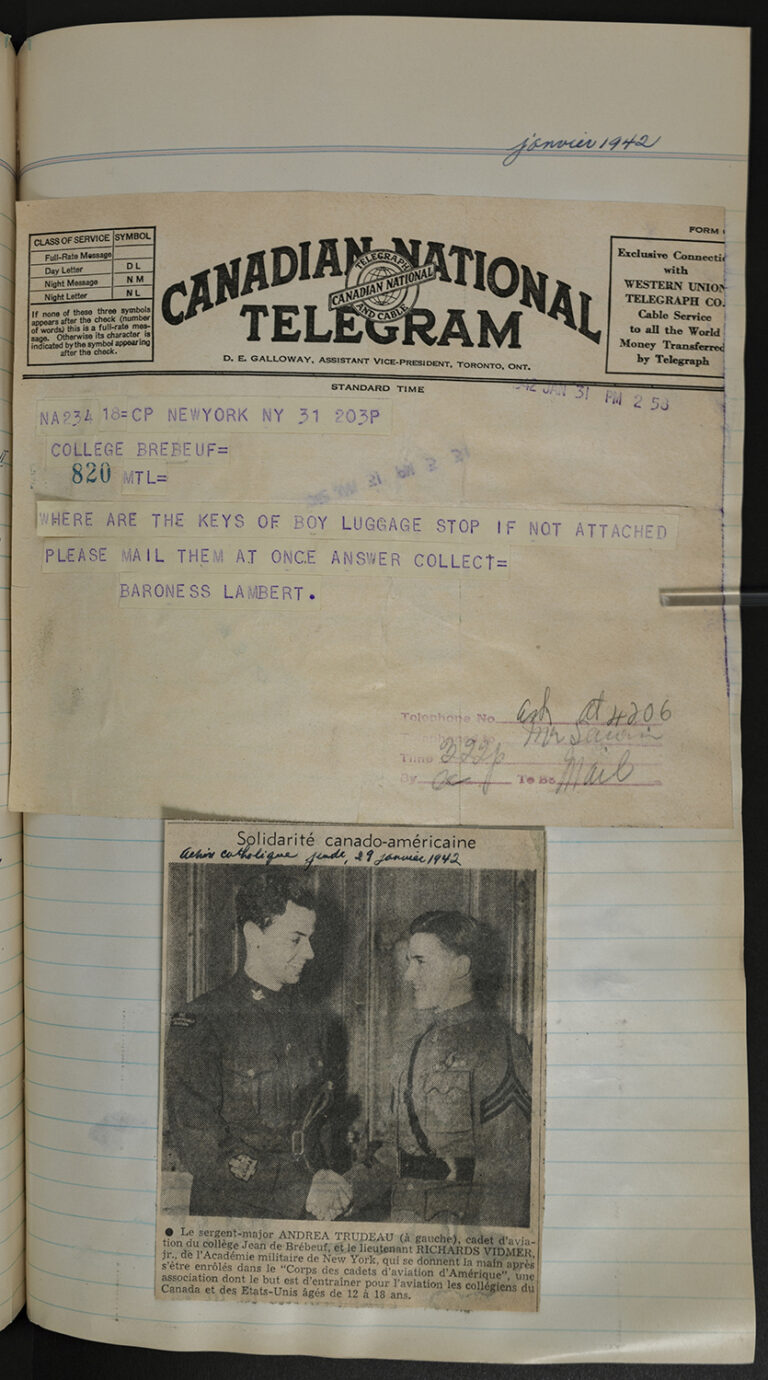 janvier 1942
FORM
CLASS OF SERVICE SYMBOL
Full-Rate Message
Day Letter D L
Night Message N M
Night Letter N L
If none of these three symbols
appears after the check (number
of words) this is a full-rate mes-
sage. Otherwise its character is
indicated by the symbol appearing
after the check.
CANADIAN NATIONAL
TELEGRAPH
CANADIAN NATIONAL
AND CABLE
TELEGRAM
D. E. GALLOWAY, ASSISTANT VICE-PRESIDENT, TORONTO, ONT.
Exclusive Connectio
with
WESTERN UNION
TELEGRAPH CO.
Cable Service
to all the World
Money Transferred
by Telegraph
STANDARD TIME
1942 JAN 31 PM 2 53
NA234 18=CP NEWYORK NY 31 203P
COLLEGE BREBEUF=
820 MTL=
WHERE ARE THE KEYS OF BOY LUGGAGE STOP IF NOT ATTACHED
PLEASE MAIL THEM AT ONCE ANSWER COLLECT=
BARONESS LAMBERT.
Telephone No. At 4206
Mr
Time 322p
By To Be Mail
Solidarité canado-américaine
Action catholique jeudi, 29 janvier 1942
● Le sergent-major ANDREA TRUDEAU (à gauche), cadet d'avia-
tion du collège Jean de Brébeuf, et le lieutenant RICHARDS VIDMER,
jr., de l'Académie militaire de New York, qui se donnent la main après
s'être enrôlés dans le "Corps des cadets d'aviation d'Amérique", une
association dont le but est d'entraîner pour l'aviation les collégiens du
Canada et des Etats-Unis âgés de 12 à 18 ans.